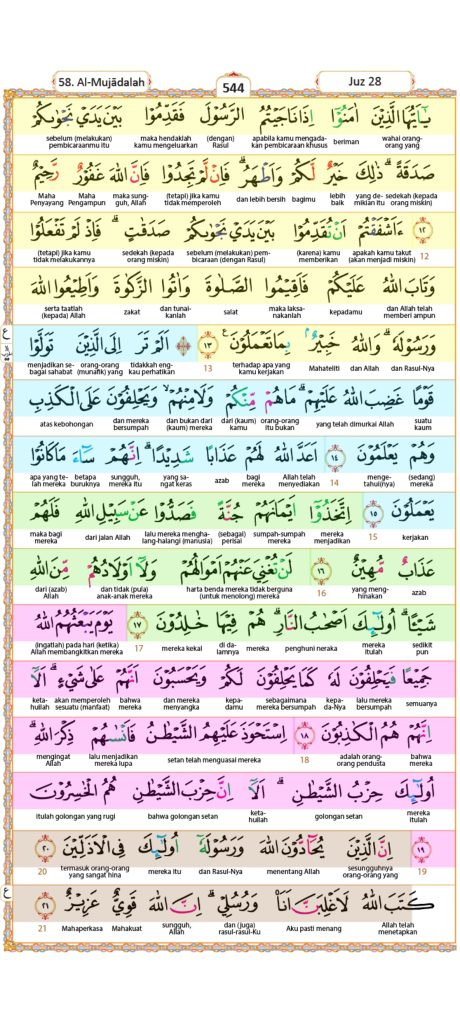 58. Al-Mujādalah
544
Juz 28
يٰٓاَيُّهَا الَّذِيْنَ اٰمَنُوْٓا اِذَا نَاجَيْتُمُ الرَّسُوْلَ فَقَدِّمُوْا بَيْنَ يَدَيْ نَجْوٰىكُمْ
wahai orang-orang yang beriman apabila kamu mengadakan pembicaraan khusus (dengan) Rasul maka hendaklah kamu mengeluarkan sebelum (melakukan) pembicaraanmu itu
صَدَقَةً ۗ ذٰلِكَ خَيْرٌ لَّكُمْ وَاَطْهَرُ ۗ فَاِنْ لَّمْ تَجِدُوْا فَاِنَّ اللّٰهَ غَفُوْرٌ رَّحِيْمٌ
sedekah (kepada orang miskin) yang demikian itu lebih baik bagimu dan lebih bersih (tetapi) jika kamu tidak memperoleh maka sungguh, Allah Maha Pengampun Maha Penyayang
١٢ ءَاَشْفَقْتُمْ اَنْ تُقَدِّمُوْا بَيْنَ يَدَيْ نَجْوٰىكُمْ صَدَقٰتٍ ۗ فَاِذْ لَمْ تَفْعَلُوْا
12 apakah kamu takut (akan menjadi miskin) (karena) kamu memberikan sebelum (melakukan) pembicaraan (dengan Rasul) sedekah (kepada orang miskin) (tetapi) jika kamu tidak melakukannya
وَتَابَ اللّٰهُ عَلَيْكُمْ فَاَقِيْمُوا الصَّلٰوةَ وَاٰتُوا الزَّكٰوةَ وَاَطِيْعُوا اللّٰهَ
dan Allah telah memberi ampun kepadamu maka laksanakanlah salat dan tunaikanlah zakat serta taatlah (kepada) Allah
وَرَسُوْلَهٗ ۗ وَاللّٰهُ خَبِيْرٌ ۢبِمَا تَعْمَلُوْنَ ࣖ ١٣ ۞ اَلَمْ تَرَ اِلَى الَّذِيْنَ تَوَلَّوْا
dan Rasul-Nya dan Allah Mahateliti terhadap apa yang kamu kerjakan 13 tidakkah engkau perhatikan orang-orang (munafik) yang menjadikan sebagai sahabat
قَوْمًا غَضِبَ اللّٰهُ عَلَيْهِمْ ۗ مَا هُمْ مِّنْكُمْ وَلَا مِنْهُمْ ۙ وَيَحْلِفُوْنَ عَلَى الْكَذِبِ
suatu kaum yang telah dimurkai Allah orang-orang itu bukan dari (kaum) kamu dan bukan dari (kaum) mereka dan mereka bersumpah atas kebohongan
وَهُمْ يَعْلَمُوْنَ ١٤ اَعَدَّ اللّٰهُ لَهُمْ عَذَابًا شَدِيْدًا ۗ اِنَّهُمْ سَاۤءَ مَا كَانُوْا
(sedang) mereka mengetahui(nya) 14 Allah telah menyediakan bagi mereka azab yang sangat keras sungguh, mereka itu betapa buruknya apa yang telah mereka
يَعْمَلُوْنَ ١٥ اِتَّخَذُوْٓا اَيْمَانَهُمْ جُنَّةً فَصَدُّوْا عَنْ سَبِيْلِ اللّٰهِ فَلَهُمْ
kerjakan 15 mereka menjadikan sumpah-sumpah mereka (sebagai) perisai lalu mereka menghalang-halangi (manusia) dari jalan Allah maka bagi mereka
عَذَابٌ مُّهِيْنٌ ١٦ لَنْ تُغْنِيَ عَنْهُمْ اَمْوَالُهُمْ وَلَآ اَوْلَادُهُمْ مِّنَ اللّٰهِ
azab yang menghinakan 16 harta benda mereka tidak berguna (untuk menolong) mereka dan tidak (pula) anak-anak mereka dari (azab) Allah
شَيْـًٔا ۗ اُولٰۤىِٕكَ اَصْحٰبُ النَّارِ ۗ هُمْ فِيْهَا خٰلِدُوْنَ ١٧ يَوْمَ يَبْعَثُهُمُ اللّٰهُ
sedikit pun mereka itulah penghuni neraka mereka di dalamnya mereka kekal 17 (ingatlah) pada hari (ketika) Allah membangkitkan mereka
جَمِيْعًا فَيَحْلِفُوْنَ لَهٗ كَمَا يَحْلِفُوْنَ لَكُمْ وَيَحْسَبُوْنَ اَنَّهُمْ عَلٰى شَيْءٍ ۗ اَلَآ
semuanya lalu mereka bersumpah kepada-Nya sebagaimana mereka bersumpah kepadamu dan mereka menyangka bahwa mereka akan memperoleh sesuatu (manfaat) ketahuilah
اِنَّهُمْ هُمُ الْكٰذِبُوْنَ ١٨ اِسْتَحْوَذَ عَلَيْهِمُ الشَّيْطٰنُ فَاَنْسٰىهُمْ ذِكْرَ اللّٰهِ ۗ
bahwa mereka adalah orang-orang pendusta 18 setan telah menguasai mereka lalu menjadikan mereka lupa mengingat Allah
اُولٰۤىِٕكَ حِزْبُ الشَّيْطٰنِ ۗ اَلَآ اِنَّ حِزْبَ الشَّيْطٰنِ هُمُ الْخٰسِرُوْنَ
mereka itulah golongan setan ketahuilah bahwa golongan setan itulah golongan yang rugi
١٩ اِنَّ الَّذِيْنَ يُحَاۤدُّوْنَ اللّٰهَ وَرَسُوْلَهٗٓ اُولٰۤىِٕكَ فِى الْاَذَلِّيْنَ ٢٠
19 sesungguhnya orang-orang yang menentang Allah dan Rasul-Nya mereka itu termasuk orang-orang yang sangat hina 20
كَتَبَ اللّٰهُ لَاَغْلِبَنَّ اَنَا۠ وَرُسُلِيْ ۗ اِنَّ اللّٰهَ قَوِيٌّ عَزِيْزٌ ٢١
Allah telah menetapkan Aku pasti menang dan (juga) rasul-rasul-Ku sungguh, Allah Mahakuat Mahaperkasa 21